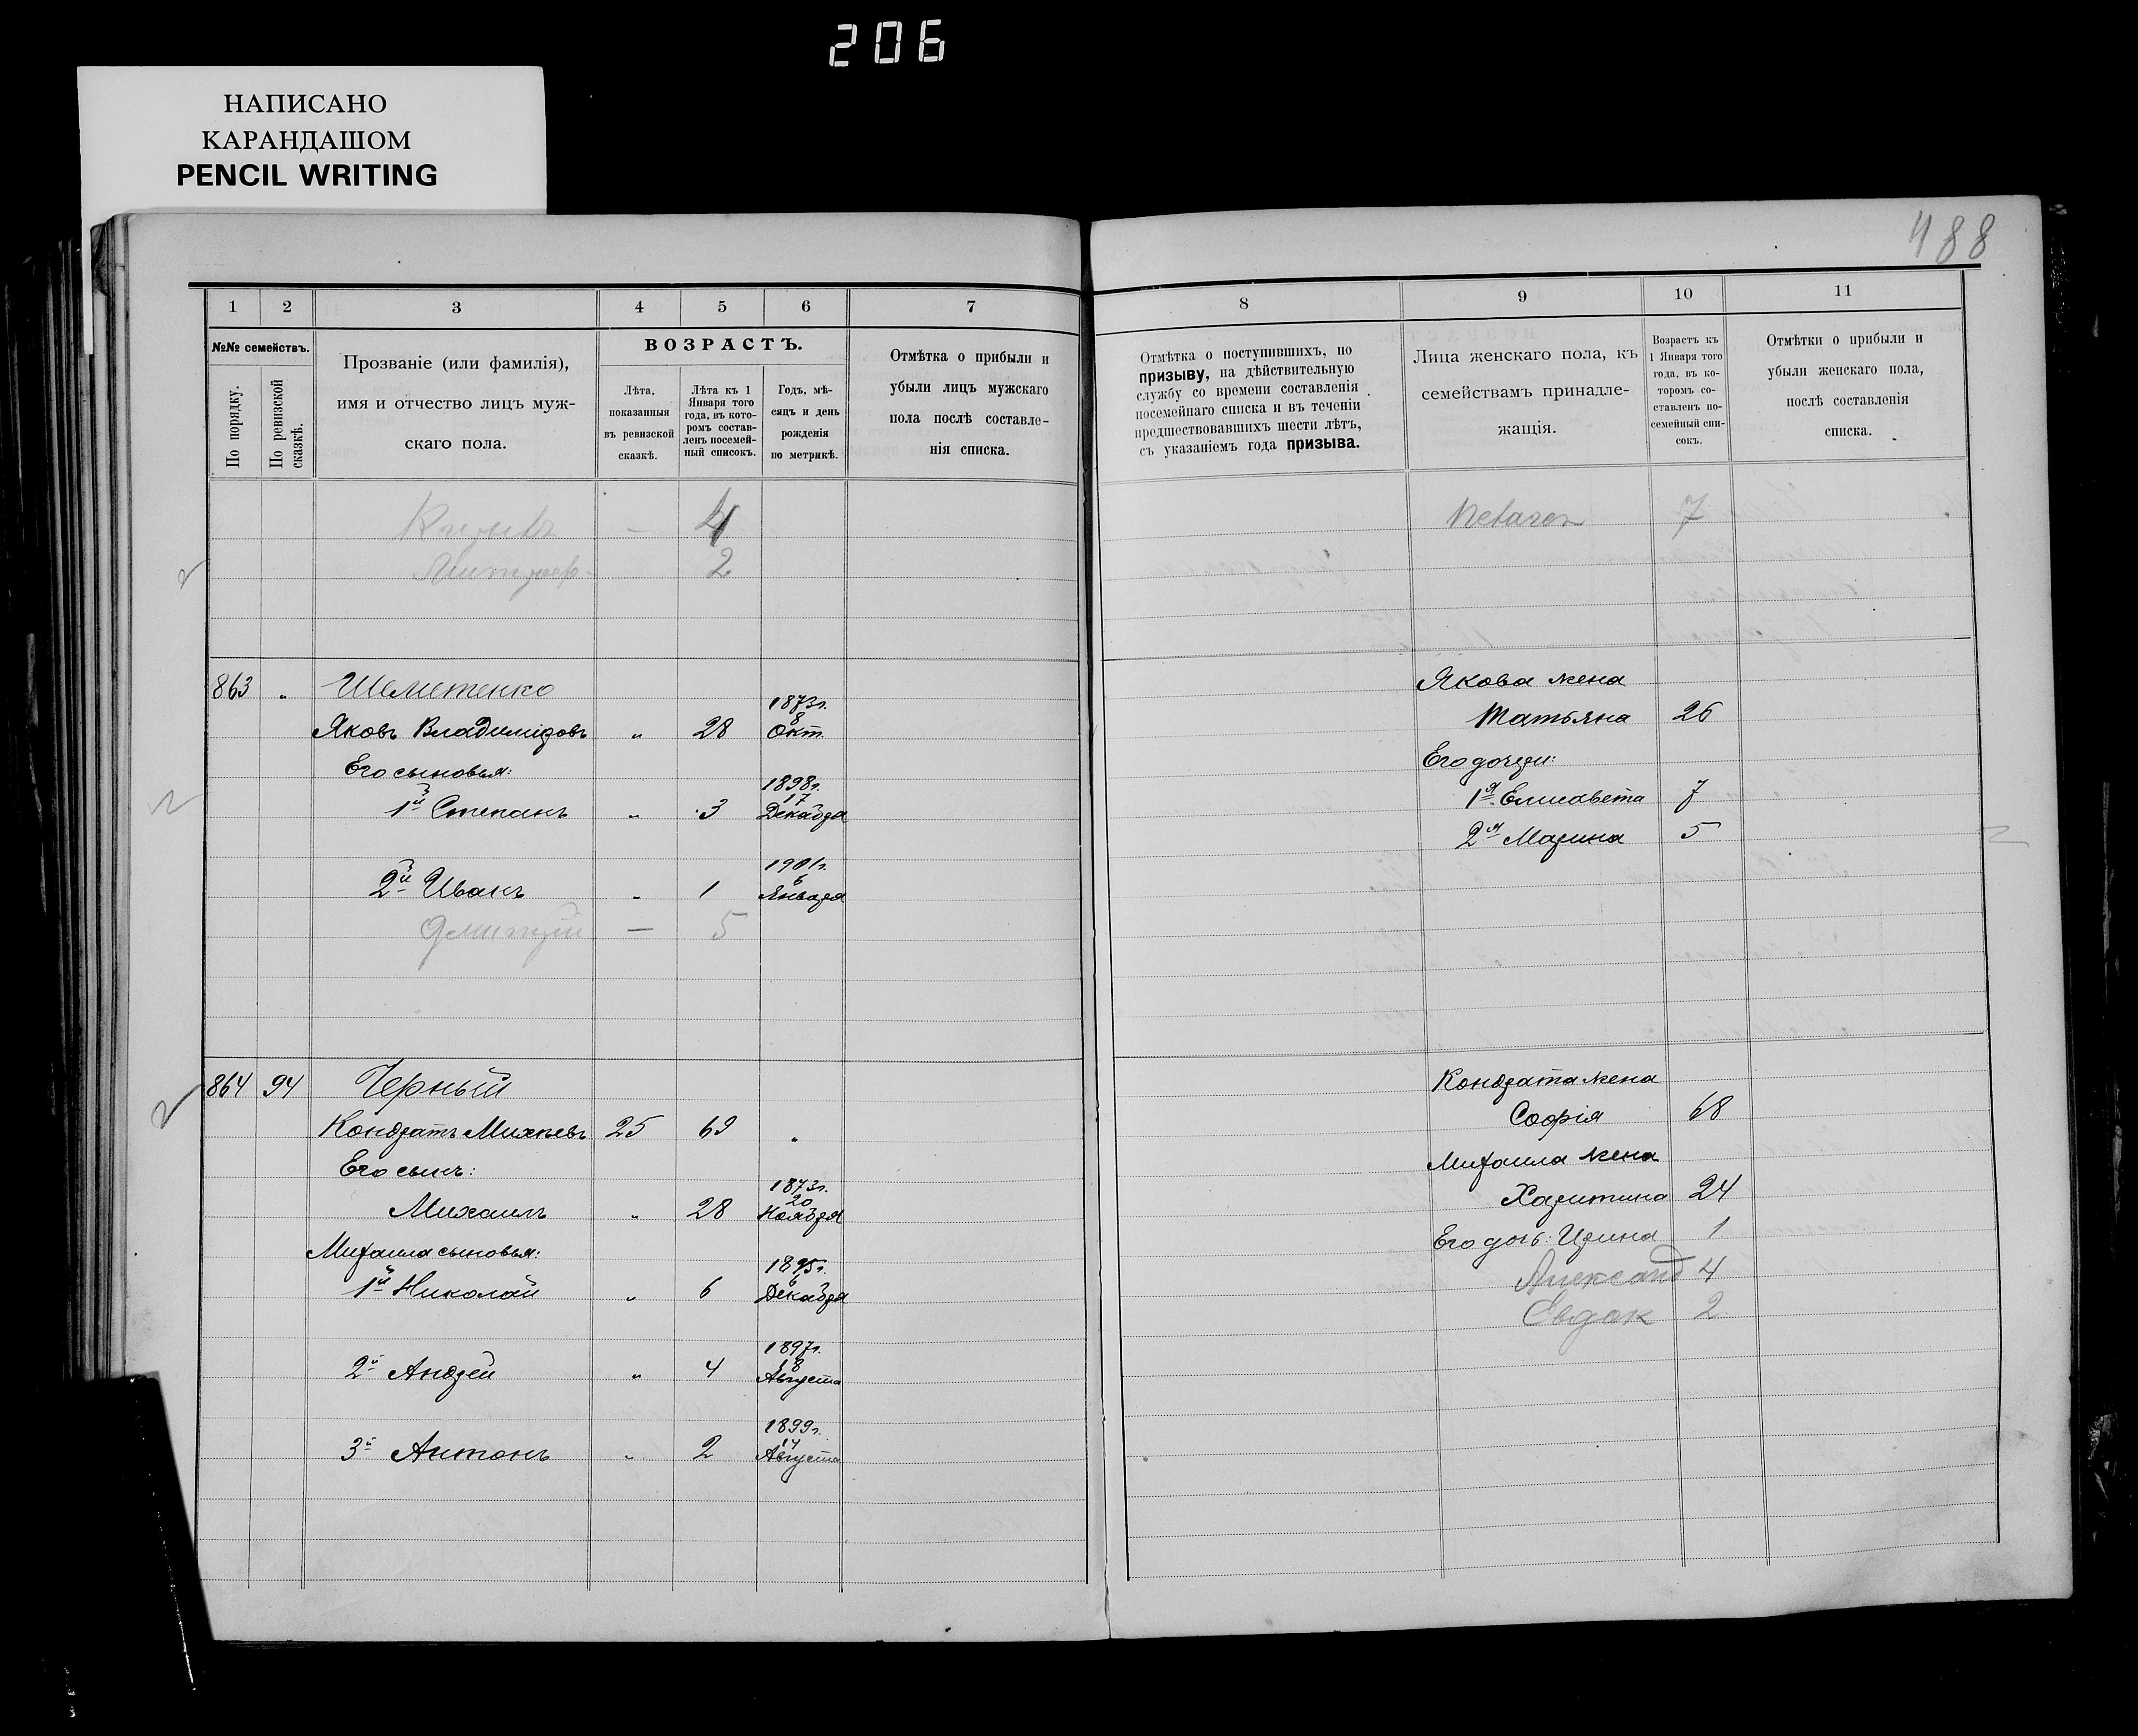 206
НАПИСАНО
КАРАНДАШОМ
PENCIL WRITING
488
1 2 3 4 5 6 7
№№ семействъ.
По порядку.
По ревизской сказкѣ.
Прозваніе (или фамилія),
имя и отчество лицъ муж-
скаго пола.
ВОЗРАСТЪ.
Лѣта,
показанныя
въ ревизской
сказкѣ.
Лѣта къ 1
Января того
года, въ кото-
ромъ состав-
ленъ посемей-
ный списокъ.
Годъ, мѣ-
сяцъ и день
рожденія
по метрикѣ.
Отмѣтка о прибыли и
убыли лицъ мужскаго
пола послѣ составле-
нія списка.
4
2
863 " Шелитенко
1873г.
8
Яковъ Владиміровъ " 28 Окт.
Его сыновья:
1898г.
17
1й Степанъ " 3 Декабря
1901г.
6
2й Иванъ " 1 Января
Дмитрій — 5
864 94 Черный
Кондратъ Михѣевъ 25 69 "
Его сынъ:
1873г.
20
Михаилъ " 28 Ноября
Михаила сыновья:
1895г.
6
1й Николай " 6 Декабря
1897г.
18
2й Андрей " 4 Августа
1899г.
14
3й Антонъ " 2 Августа
8 9 10 11
Отмѣтка о поступившихъ, по
призыву, на дѣйствительную
службу со времени составленія
посемейнаго списка и въ теченіи
предшествовавшихъ шести лѣтъ,
съ указаніемъ года призыва.
Лица женскаго пола, къ
семействамъ принадле-
жащія.
Возрастъ къ
1 Января того
года, въ ко-
торомъ со-
ставленъ по-
семейный спи-
сокъ.
Отмѣтки о прибыли и
убыли женскаго пола,
послѣ составленія
списка.
7
Якова жена
Татьяна 26
Его дочери:
1я Елисавета 7
2я Марина 5
Кондрата жена
София 68
Михаила жена
Харитина 24
Его дочь: Ирина 1
Александ 4
Евдок 2